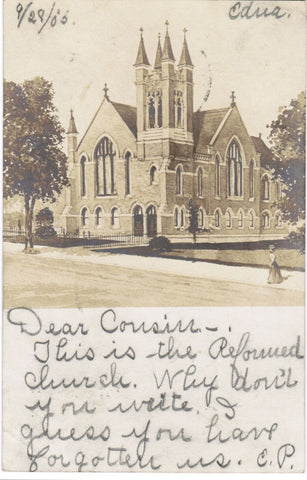 9/28/05.
Edna.
Dear Cousin -.
This is the Reformed
church. Why don't
you write. I
guess you have
forgotten us. C.P.